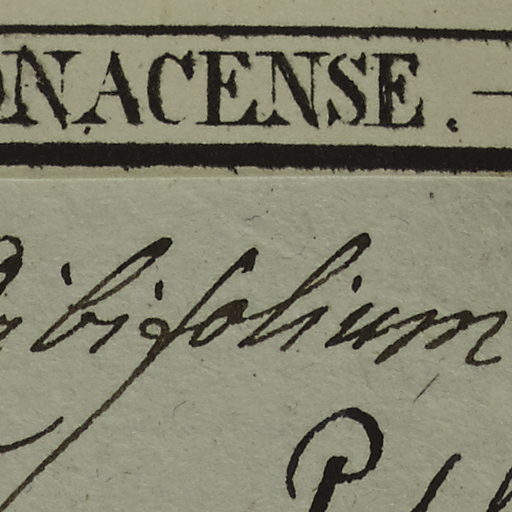 ONACENSE. —
ibifolium
P